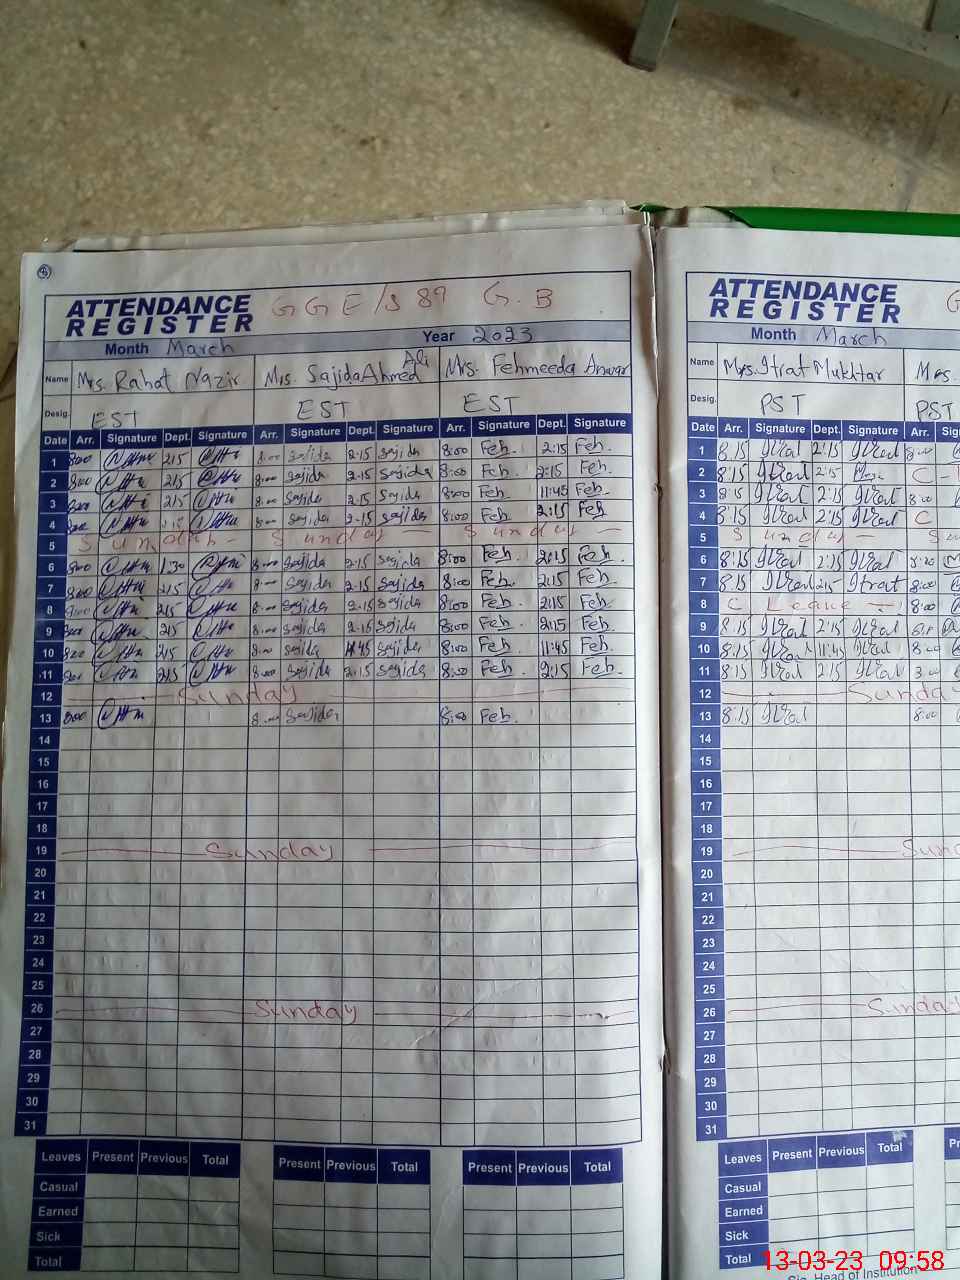 ATTENDANCE REGISTER GGE/S 89 G.B
Month March Year 2023
Name Mrs. Rahat Nazir Mrs. Sajida Ahmed Ali Mrs. Fehmeeda Anwar
Desig. EST EST EST
Date Arr. Signature Dept. Signature Arr. Signature Dept. Signature Arr. Signature Dept. Signature
1 800 215 8:00 Sajida 2:15 Sajida 8:00 Feh. 2:15 Feh.
2 800 215 8:00 Sajida 2:15 Sajida 8:00 Feh. 2:15 Feh.
3 800 215 8:00 Sajida 2:15 Sajida 8:00 Feh. 11:45 Feh.
4 800 8:00 Sajida 2:15 Sajida 8:00 Feh. 2:15 Feh
5 Sunday - Sunday - Sunday -
6 800 1:30 8:00 Sajida 2:15 Sajida 8:00 Feh 2:15 Feh.
7 800 215 8:00 Sajida 2:15 Sajida 8:00 Feh. 2:15 Feh.
8 800 215 8:00 Sajida 2:15 Sajida 8:00 Feh. 2:15 Feh.
9 800 215 8:00 Sajida 2:15 Sajida 8:00 Feh. 2:15 Feh.
10 800 215 8:00 Sajida 11:45 Sajida 8:00 Feh. 11:45 Feh.
11 800 215 8:00 Sajida 2:15 Sajida 8:00 Feh. 2:15 Feh.
12 Sunday
13 800 8:00 Sajida 8:00 Feh.
14
15
16
17
18
19 Sunday
20
21
22
23
24
25
26 Sunday
27
28
29
30
31
Leaves Present Previous Total Present Previous Total Present Previous Total
Casual
Earned
Sick
Total
ATTENDANCE REGISTER G
Month March
Name Mrs. Itrat Mukhtar Mrs.
Desig. PST PST
Date Arr. Signature Dept. Signature Arr.
1 8:15 Itrat 2:15 Itrat 8:00
2 8:15 Itrat 2:15 C -
3 8:15 Itrat 2:15 Itrat 8:00
4 8:15 Itrat 2:15 Itrat C
5 Sunday -
6 8:15 Itrat 2:15 Itrat 8:00
7 8:15 Itrat 2:15 Itrat 8:00
8 C Leave - 8:00
9 8:15 Itrat 2:15 Itrat
10 8:15 Itrat 11:45 Itrat 8:00
11 8:15 Itrat 2:15 Itrat
12 Sunday
13 8:15 Itrat 8:00
14
15
16
17
18
19
20
21
22
23
24
25
26 Sunday
27
28
29
30
31
Leaves Present Previous Total
Casual
Earned
Sick
Total
Head of Institution
13-03-23 09:58